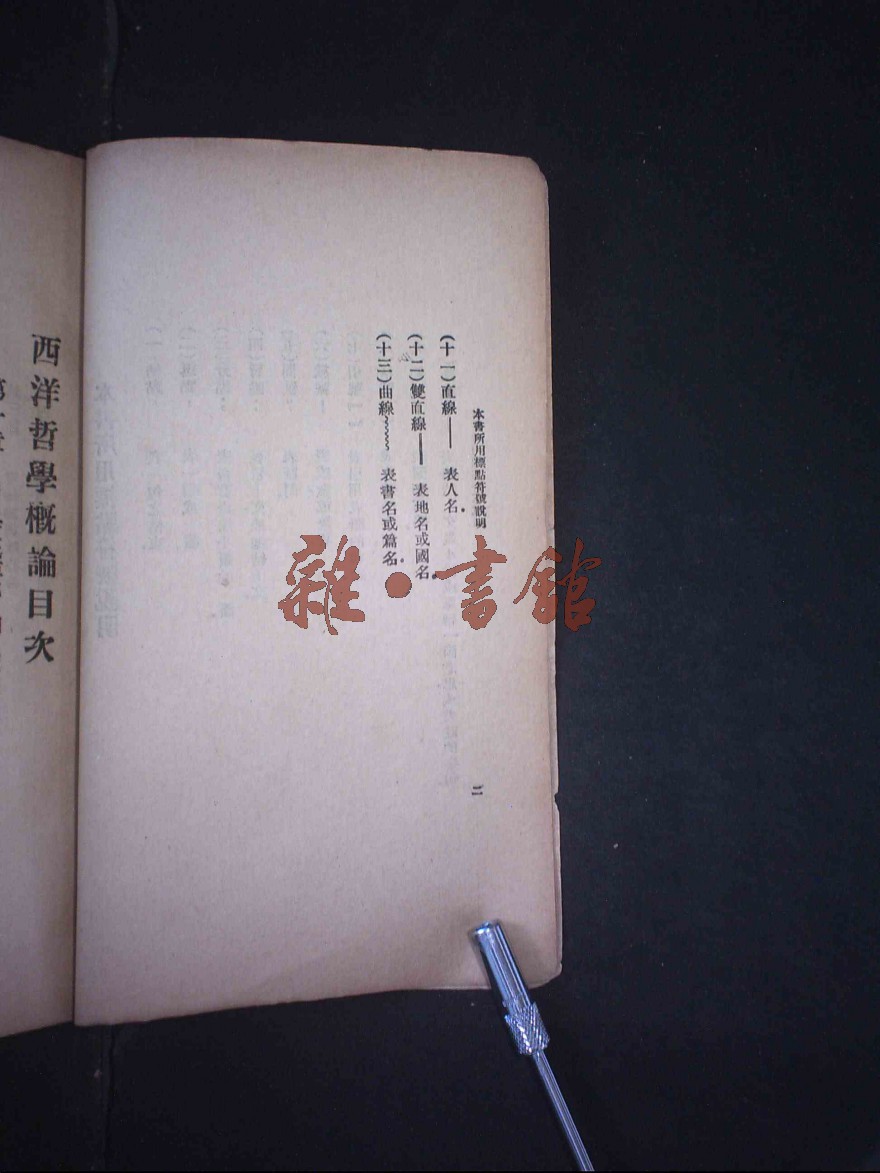 本書所用標點符號說明
二
(十一)直線—— 表人名。
(十二)雙直線—— 表地名或國名。
(十三)曲線﹏﹏ 表書名或篇名。
西洋哲學概論目次
雜•書館